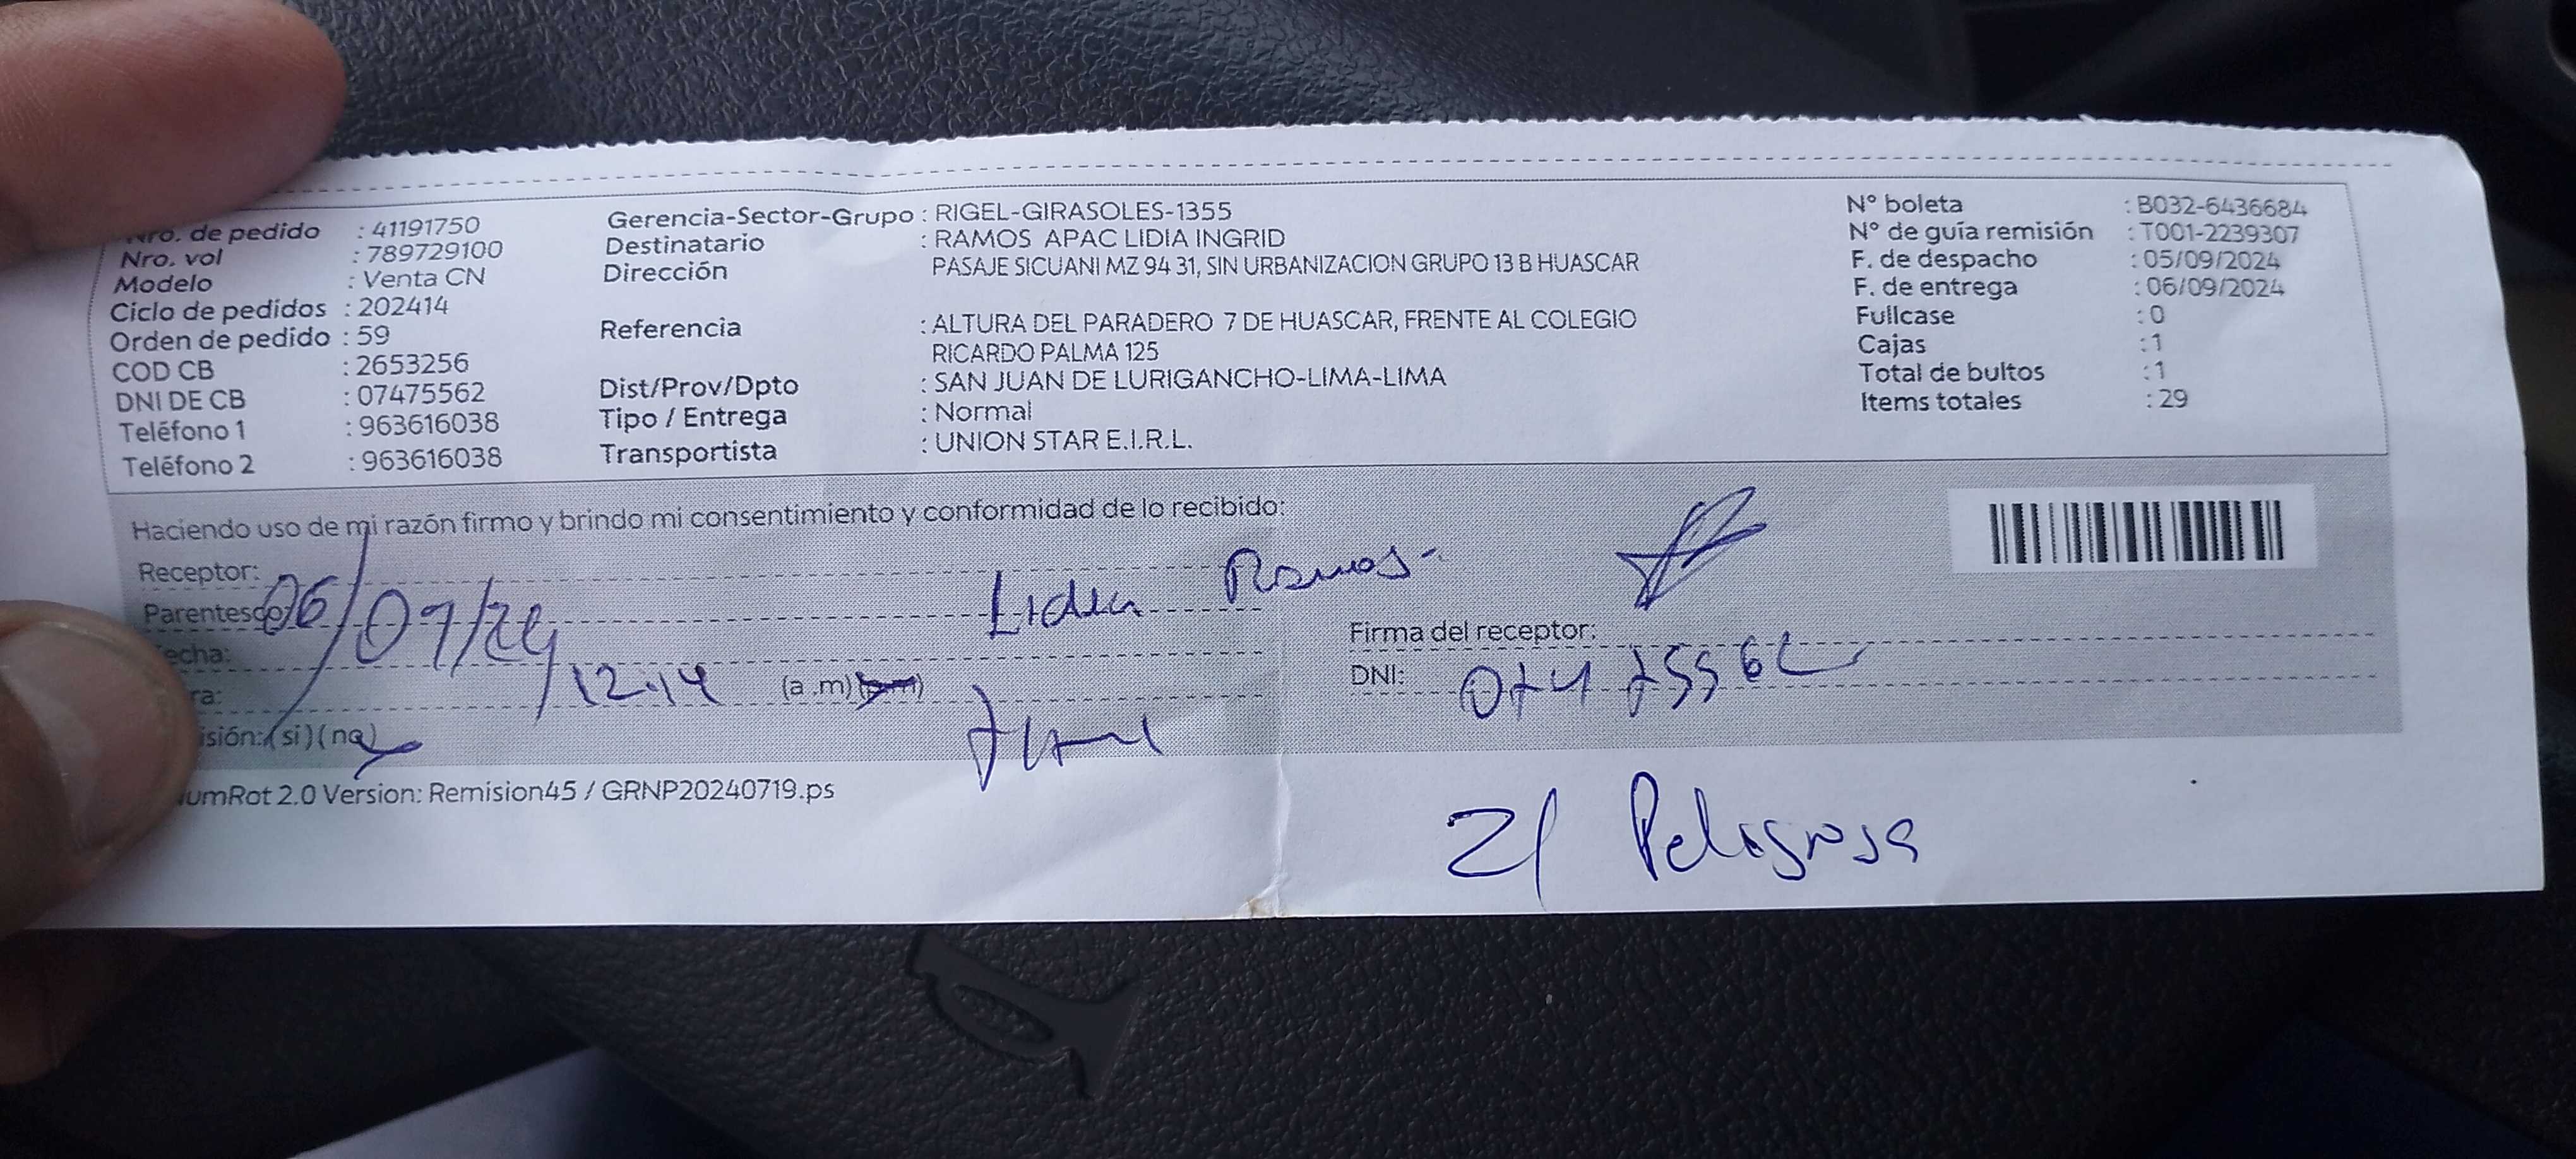 Nro. de pedido : 41191750
Nro. vol : 789729100
Modelo : Venta CN
Ciclo de pedidos : 202414
Orden de pedido : 59
COD CB : 2653256
DNI DE CB : 07475562
Teléfono 1 : 963616038
Teléfono 2 : 963616038
Gerencia-Sector-Grupo : RIGEL-GIRASOLES-1355
Destinatario : RAMOS APAC LIDIA INGRID
Dirección PASAJE SICUANI MZ 94 31, SIN URBANIZACION GRUPO 13 B HUASCAR
Referencia : ALTURA DEL PARADERO 7 DE HUASCAR, FRENTE AL COLEGIO
RICARDO PALMA 125
Dist/Prov/Dpto : SAN JUAN DE LURIGANCHO-LIMA-LIMA
Tipo / Entrega : Normal
Transportista : UNION STAR E.I.R.L.
N° boleta : B032-6436684
N° de guía remisión : T001-2239307
F. de despacho : 05/09/2024
F. de entrega : 06/09/2024
Fullcase : 0
Cajas : 1
Total de bultos : 1
Items totales : 29
Haciendo uso de mi razón firmo y brindo mi consentimiento y conformidad de lo recibido:
Receptor: Lidia Ramos-
Parentesco:
echa: 06/09/24
ra: 12:14 (a.m)(p.m)
isión: (si)(no)
Firma del receptor:
DNI: 07475562
umRot 2.0 Version: Remision45 / GRNP20240719.ps
Z/ Peligrosa